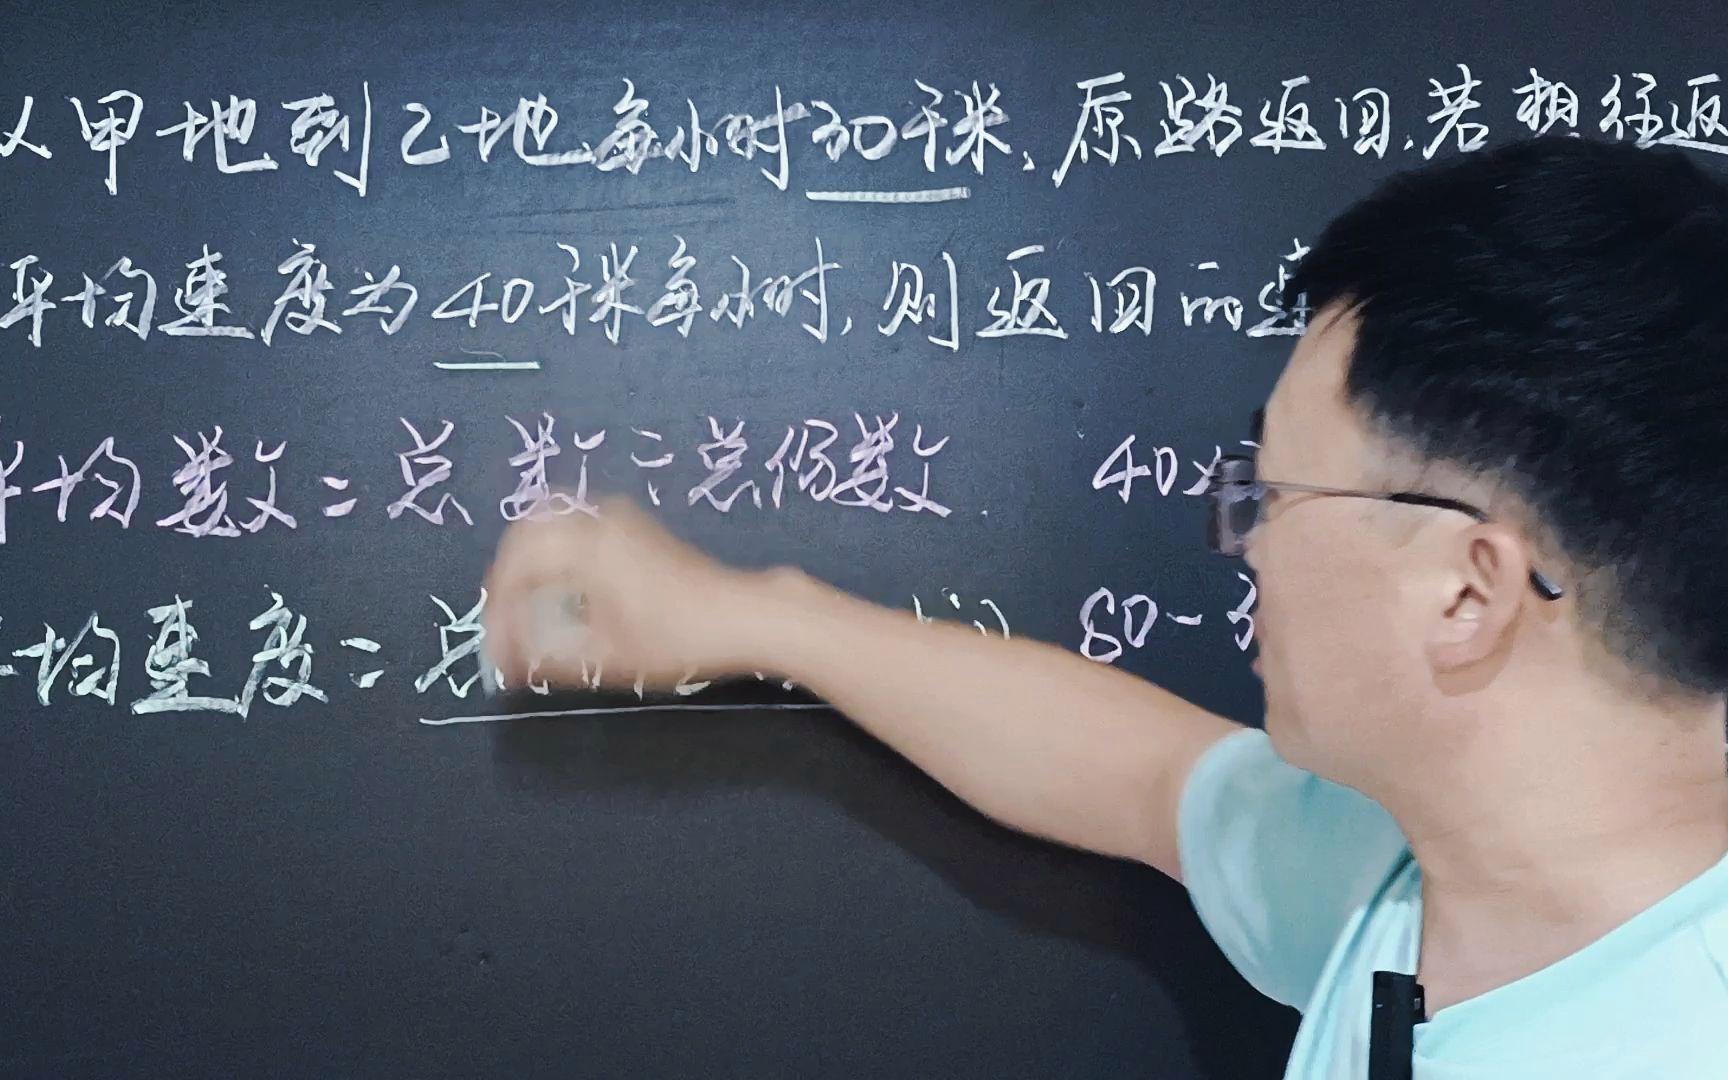 从甲地到乙地,每小时30千米,原路返回,若想往返
平均速度为40千米每小时,则返回的速
平均数=总数÷总份数. 40×
平均速度=总
80-3